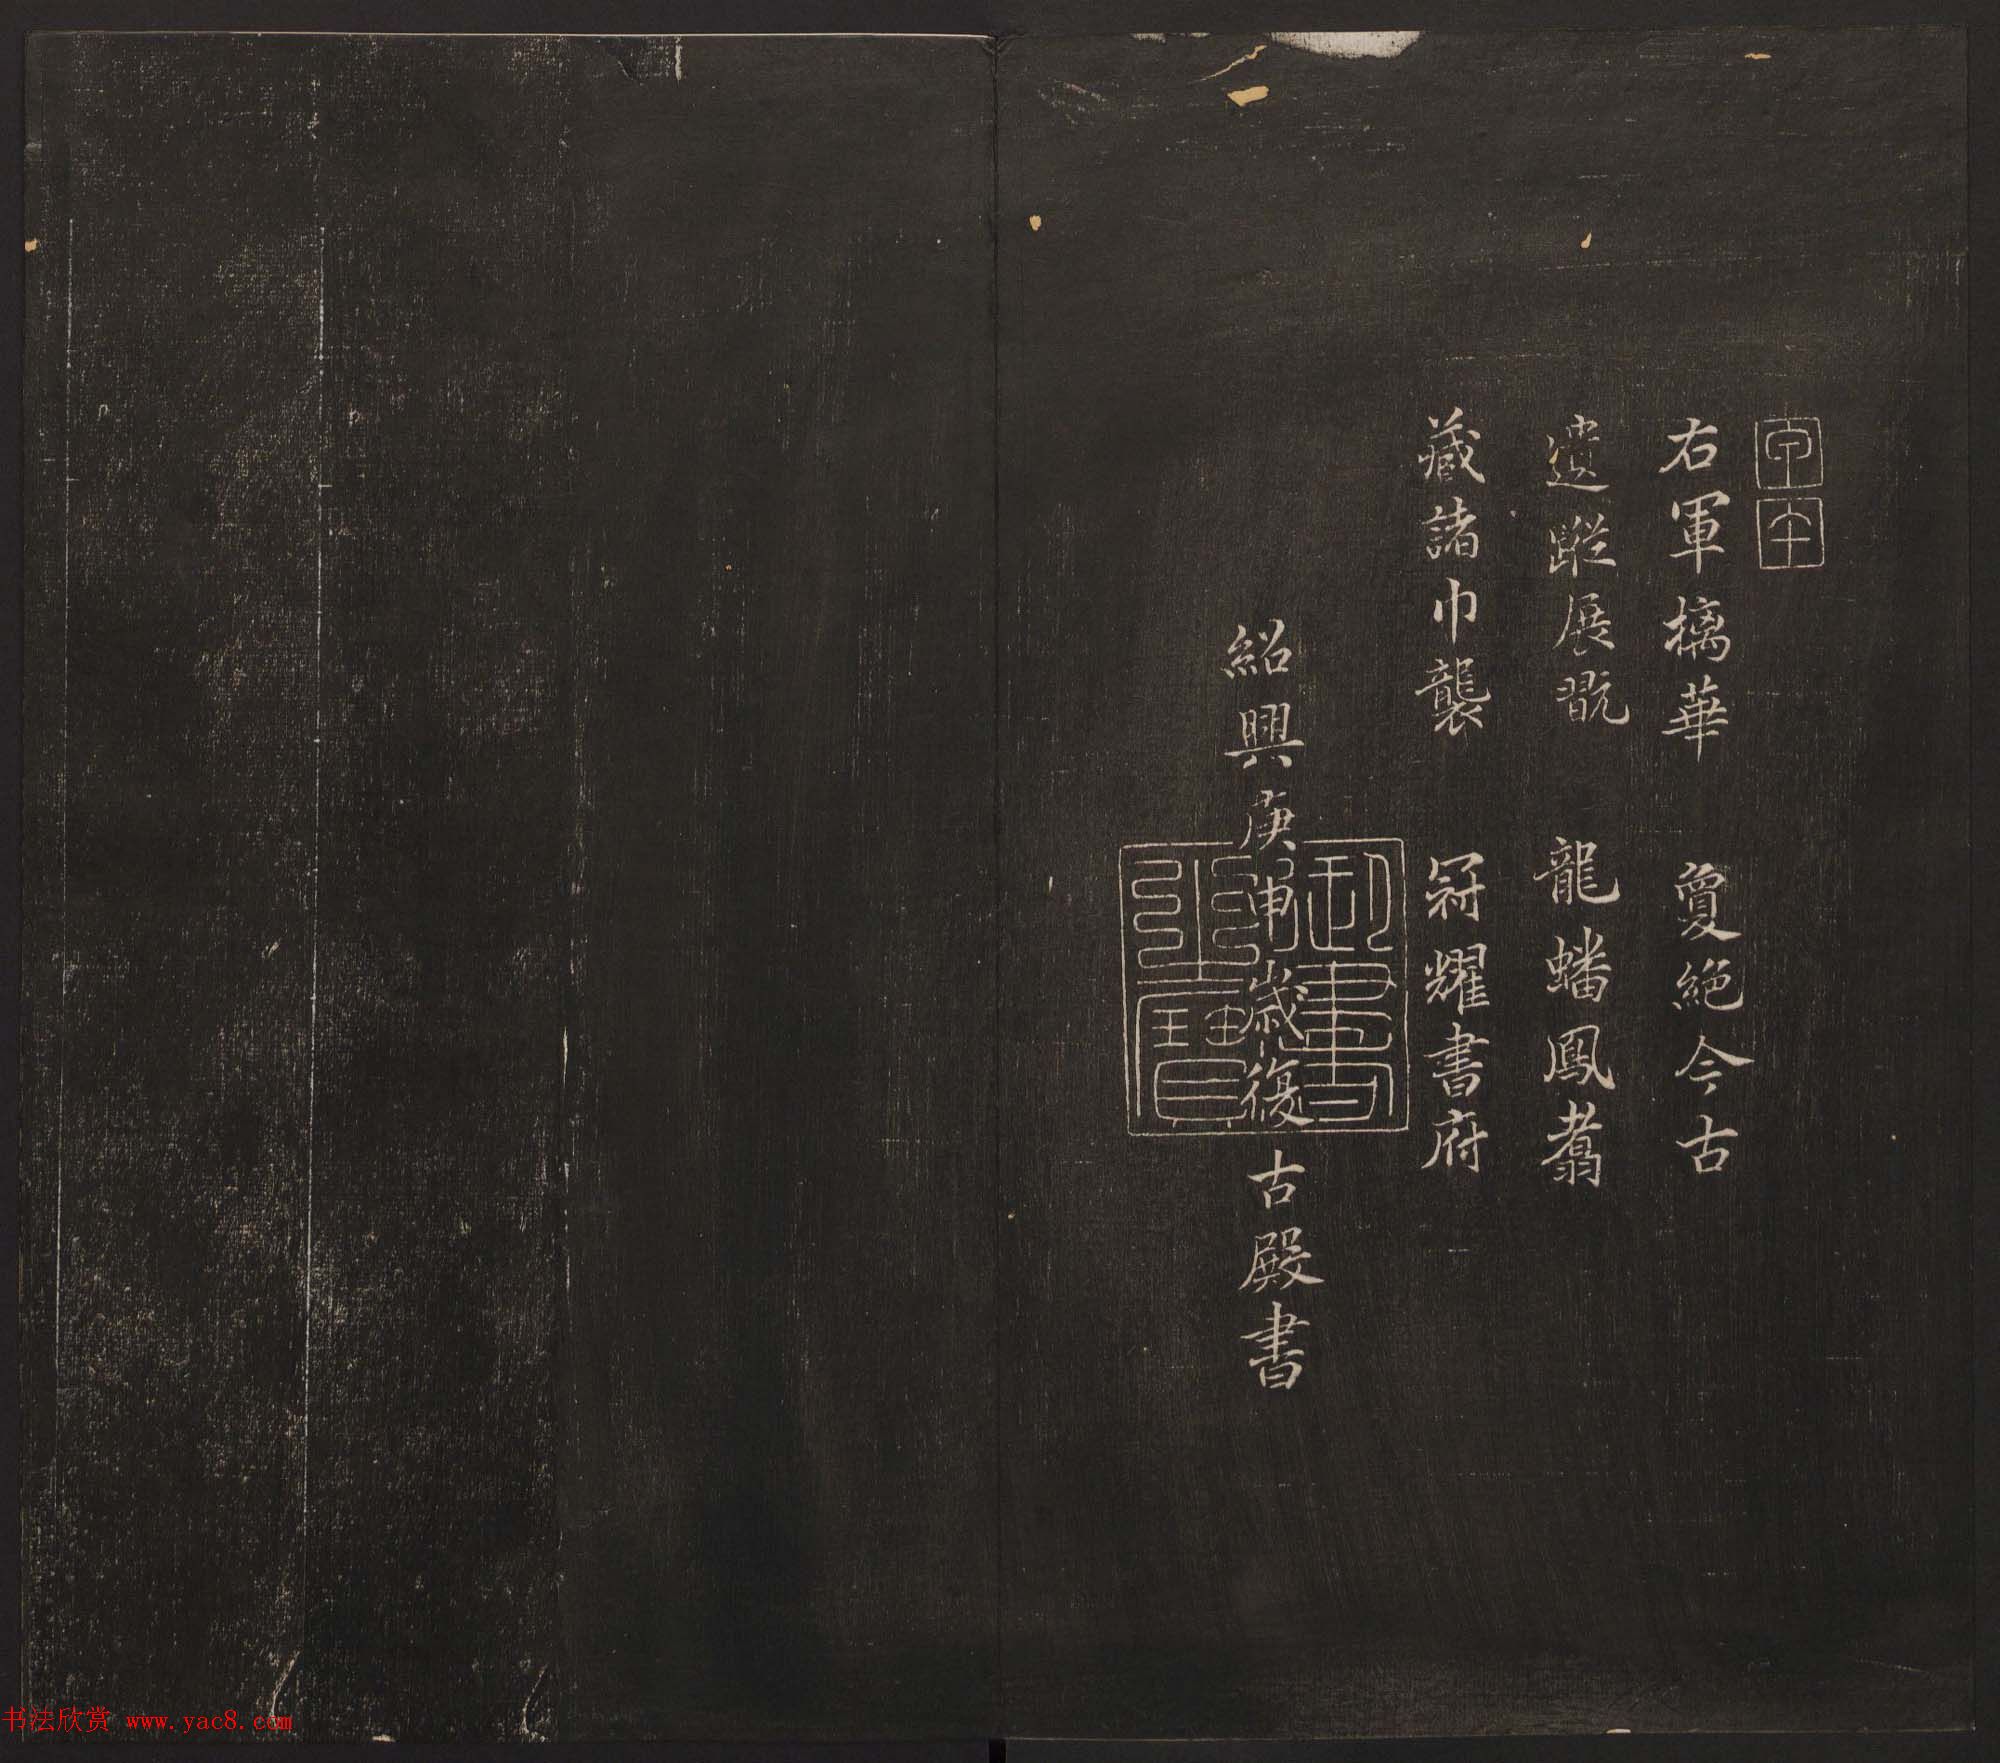 右軍摛華 敻絕今古
遺蹤展翫 龍蟠鳳翥
藏諸巾襲 冠耀書府
紹興庚申歲復古殿書
御書之寶
书法欣赏 www.yac8.com